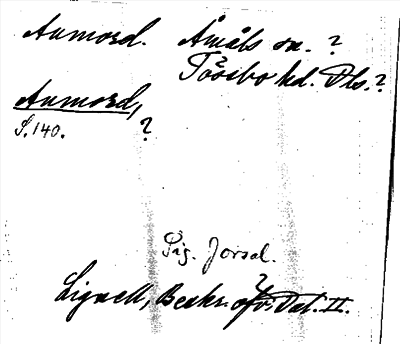 Aumord. Åmåls sn. ?
Tössbo hd. Dls. ?
Aumord, ?
S. 140.
Sig. Jorsal.
Lignell, Beskr. öfv. Dal. II.